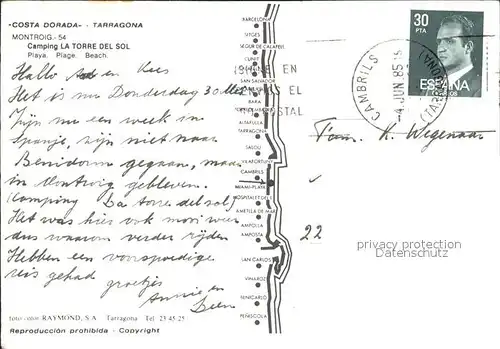 -COSTA DORADA- - TARRAGONA
MONTROIG.- 54
Camping LA TORRE DEL SOL
Playa. Plage. Beach.
Hallo en Kees
Het is nu Donderdag 30 Mei
Zijn nu een week in
Spanje, zijn niet naar
Benidorm gegaan, maar
in Montroig gebleven.
Camping La torre del sol,
Het was hier ook mooi weer
dus waarom verder rijden
Hebben een voorspoedige
reis gehad groetjes
Annie en
foto color RAYMOND, S.A. Tarragona Tel. 23 45 25
Reproducción prohibida - Copyright
BARCELONA
SITGES
SEGUR DE CALAFELL
CUNIT
BARA
ALTAFULLA
TARRAGONA
SALOU
VILAFORTUNY
CAMBRILS
MIAMI-PLAYA
HOSPITALET
AMETLLA DE MAR
AMPOLLA
AMPOSTA
SAN CARLOS
VINAROZ
BENICARLO
PEÑISCOLA
EN
EL
POSTAL
CAMBRILS
-4.JUN.85
(TARRAGONA)
30
PTA
ESPAÑA
Fam. K. Wegenaar
22
privacy protection
Datenschutz